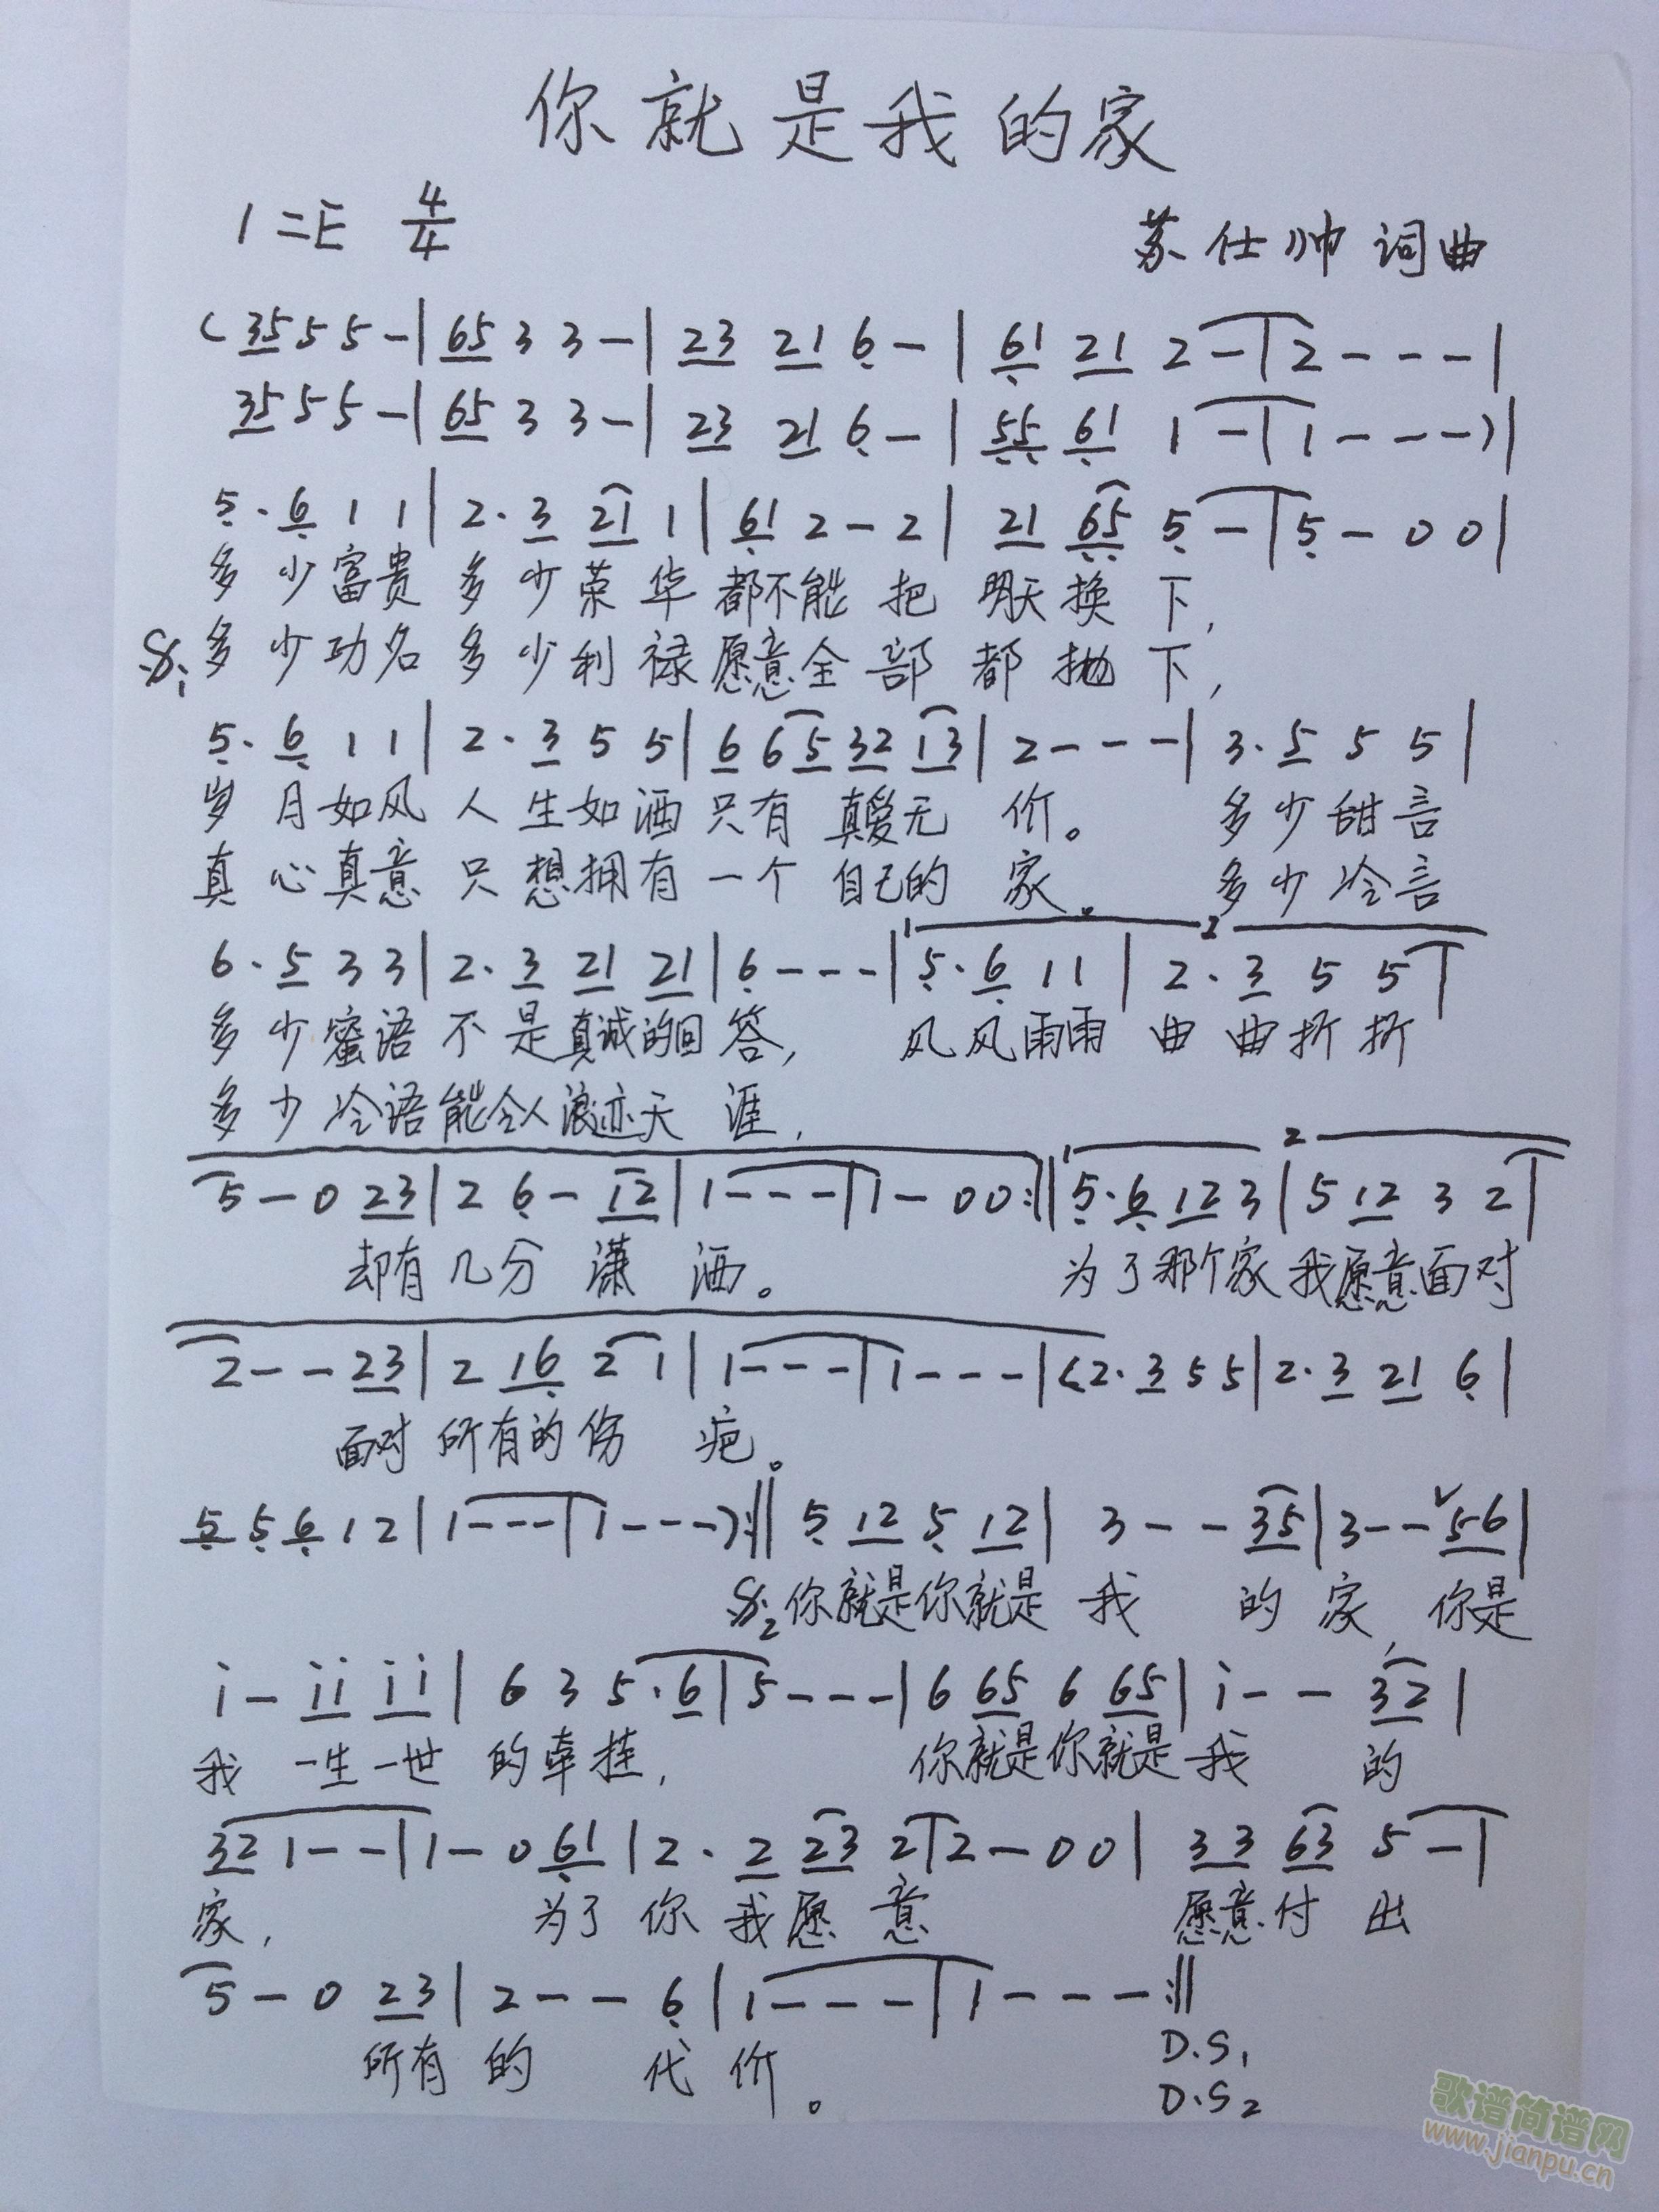 你就是我的家
1=E 4/4
苏仕帅 词曲
( 35 5 5 - | 65 3 3 - | 23 21 6 - | 61 21 2 - | 2 - - - |
35 5 5 - | 65 3 3 - | 23 21 6 - | 55 61 1 - | 1 - - - ) |
5 · 6 1 1 | 2 · 3 21 1 | 61 2 - 2 | 21 65 5 - | 5 - 0 0 |
多少富贵 多少荣华 都不能把明天换下,
𝄋1 多少功名 多少利禄愿意全部都抛下,
5 · 6 1 1 | 2 · 3 5 5 | 6 6 5 32 13 | 2 - - - | 3 · 5 5 5 |
岁月如风 人生如洒只有真爱无价。 多少甜言
真心真意 只想拥有一个自己的家。 多少冷言
6 · 5 3 3 | 2 · 3 21 21 | 6 - - - | 1 5 · 6 1 1 | 2 · 3 5 5 | 2
多少蜜语不是真诚的回答, 风风雨雨曲曲折折
多少冷语能令人浪迹天涯,
5 - 0 23 | 2 6 - 12 | 1 - - - | 1 - 0 0 :‖ 1 5 · 6 12 3 | 2 5 12 3 2 |
却有几分潇洒。 为了那个家我愿意面对
2 - - 23 | 2 16 2 1 | 1 - - - | 1 - - - | ( 2 · 3 5 5 | 2 · 3 21 6 |
面对所有的伤疤。
5 5 6 1 2 | 1 - - - | 1 - - - ) :‖ 5 12 5 12 | 3 - - 35 | 3 - - ˅ 56 |
𝄋2 你就是你就是我的家, 你是
i - ii ii | 6 3 5 · 6 | 5 - - - | 6 65 6 65 | i - - 32 |
我一生一世的牵挂, 你就是你就是我的
32 1 - - | 1 - 0 61 | 2 · 2 23 2 | 2 - 0 0 | 33 63 5 - |
家, 为了你我愿意 愿意付出
5 - 0 23 | 2 - - 6 | 1 - - - | 1 - - - :‖
所有的代价。
D.S1
D.S2
歌谱简谱网
www.jianpu.cn